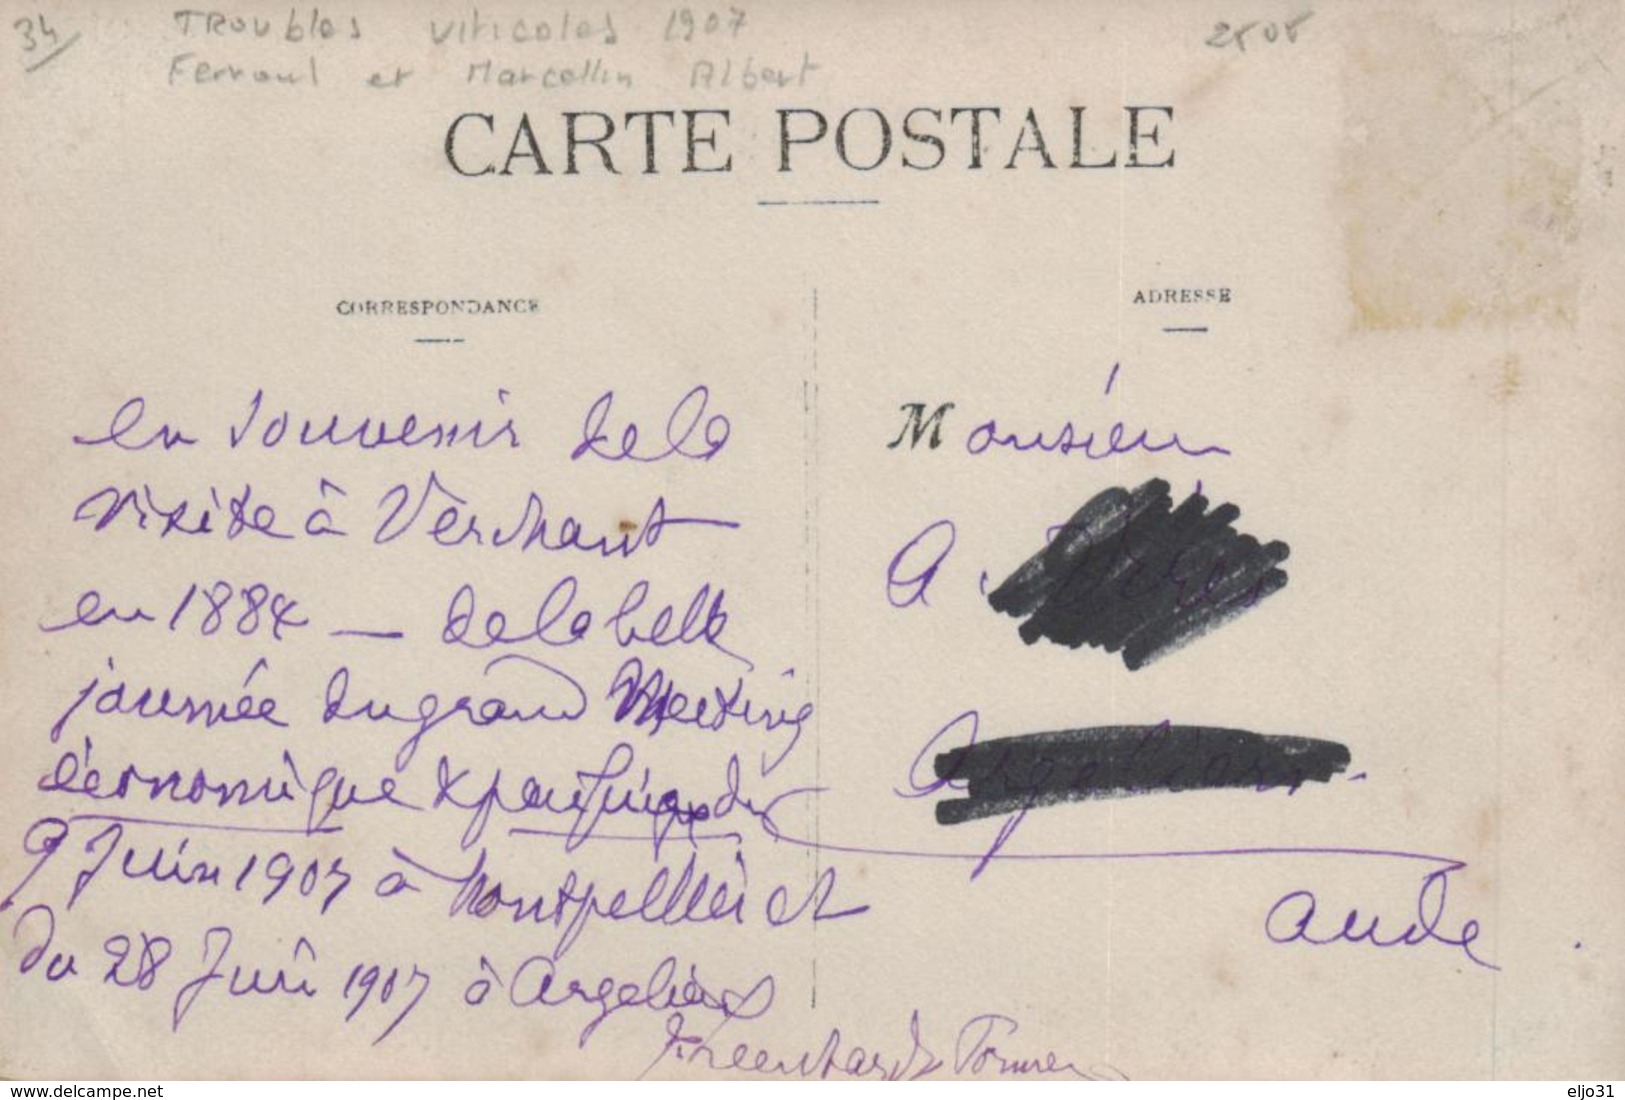 34
Troubles viticoles 1907
Ferroul et Marcellin Albert
CARTE POSTALE
CORRESPONDANCE
en souvenir de la
visite à Verchant
en 1884 — de la belle
journée du grand Meeting
économique & pacifique du
9 Juin 1907 à Montpellier et
du 28 Juin 1907 à Argeliers
ADRESSE
Monsieur
A.
Aude
eljo31